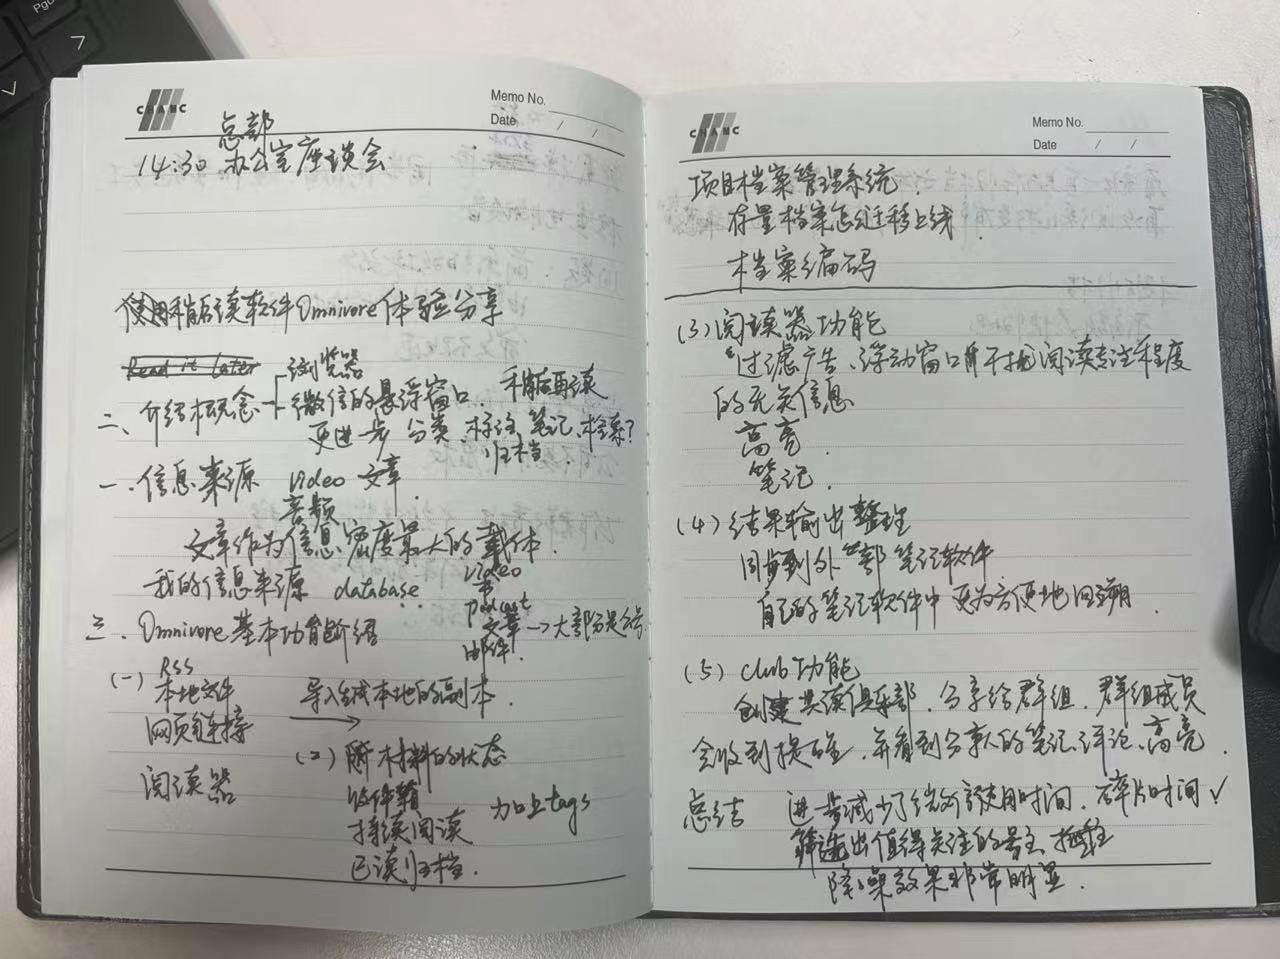 PgU
CHAMC
Memo No.
Date / /
总部
14:30 办公室座谈会
使用稍后读软件Omnivore体验分享
Read it Later
浏览器
二、介绍概念 微信的悬浮窗口、稍后再读
更进一步 分类、标注、笔记、检索?
归档.
一、信息来源 video 文章.
音频
文章作为信息密度最大的载体.
我的信息来源 database. video
书
podcast
三、Omnivore基本功能介绍 文章→大部分是公号
邮件.
(一) RSS
本地文件 导入生成本地的副本.
网页链接
(二) 材料的状态
阅读器 收件箱 加上tags
持续阅读
已读归档.
CHAMC
Memo No.
Date / /
项目档案管理系统.
存量档案怎么迁移上线.
档案编码
(3) 阅读器功能
过滤广告、浮动窗口等干扰阅读专注程度
的无关信息
高亮.
笔记.
(4) 结果输出整理
同步到外部笔记软件
自己的笔记软件中更为方便地回溯.
(5) club功能
创建共读俱乐部.分享给群组.群组成员
会收到提醒,并看到分享人的笔记、评论、高亮.
总结 进一步减少了使用时间.碎片时间✓
筛选出值得关注的
降噪效果非常明显.